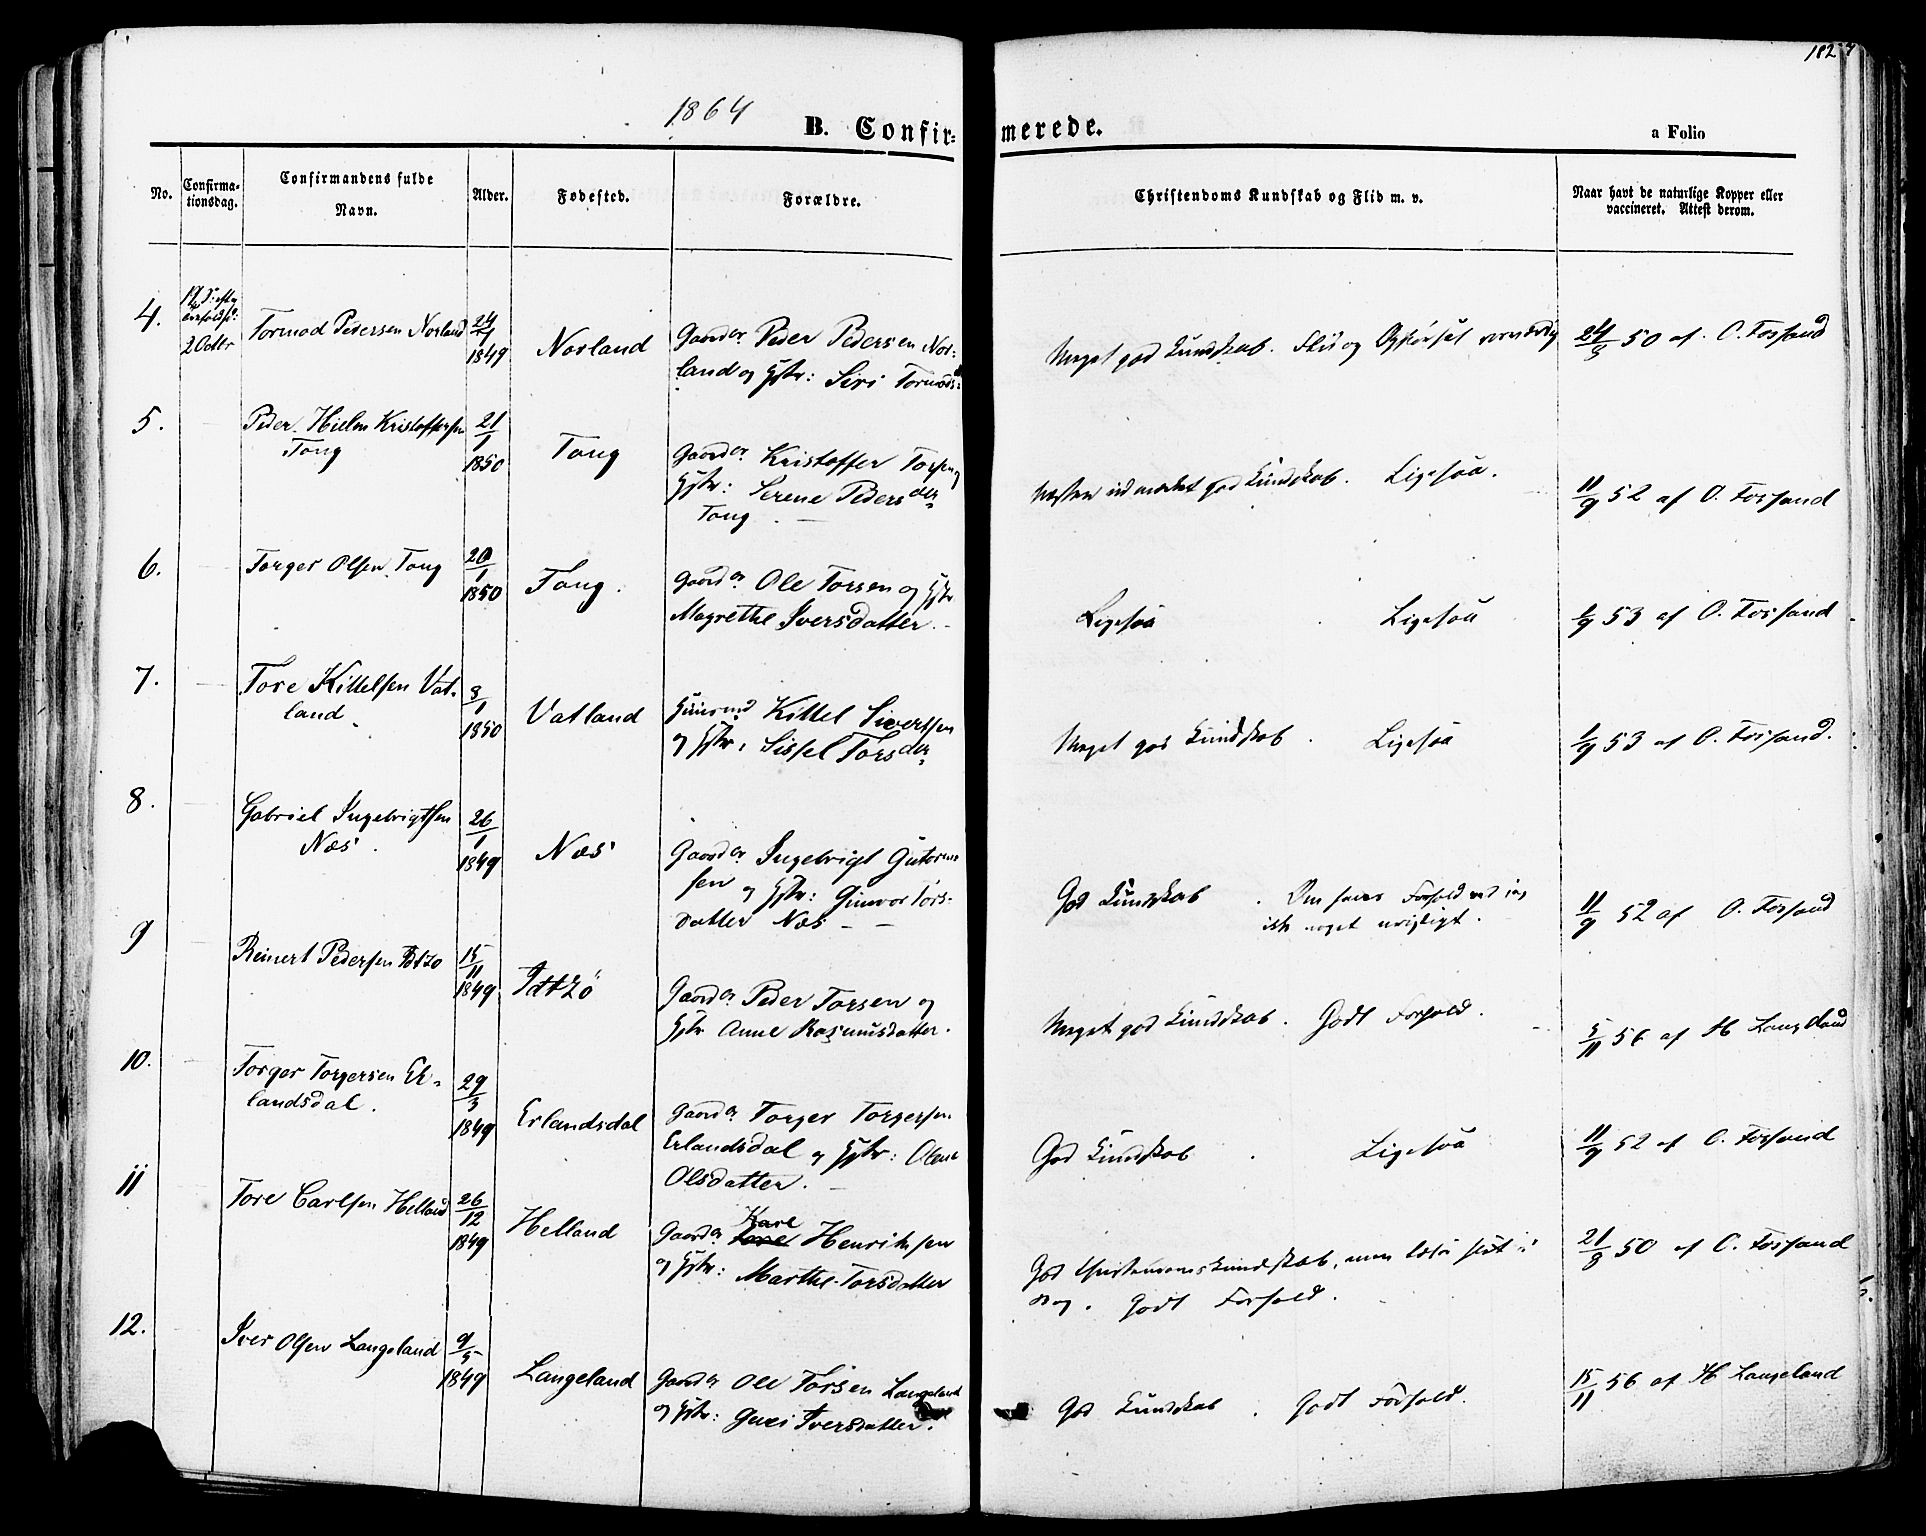 182
1864
B. Confir-
merede.
a Folio
No.
Confirma-
tionsdag.
Confirmandens fulde
Navn.
Alder.
Fødested.
Forældre.
Christendoms Kundskab og Flid m. v.
Naar havt de naturlige Kopper eller
vaccineret. Attest derom.
4.
2 Octbr
Tormod Pedersen Norland
24/4
1849
Norland
Gaardbr Peder Pedersen Nor-
land og Hstr: Siri Tormods-
Meget god Kundskab. Flid og Opførsel
24/5 50 af O. Fossand
5.
Peder Hielm Kristoffersen
Tong
21/1
1850
Tong
Gaardbr Kristoffer Torsen og
Hstr: Serene Pedersdtr
Tong
Næsten udmærket god Kundskab. Ligesaa.
11/9 52 af O. Fossand
6.
Torger Olsen Tong
20/1
1850
Tong.
Gaardbr Ole Torsen og Hstr
Magrethe Iversdatter.
Ligesaa
Ligesaa
1/9 53 af O. Fossand
7.
Tore Kittelsen Vat-
land
3/1
1850
Vatland
Huusmd Kittel Sivertsen
og Hstr. Sissel Torsdtr
Meget god Kundskab. Ligesaa
1/9 53 af O. Fossand.
8.
Gabriel Ingebrigtsen
Næs.
26/1
1849
Næs
Gaardbr Ingebrigt Gutorm-
sen og Hstr: Gunvor Tors-
datter Næs
God Kundskab. Om hans Forhold ved jeg
ikke noget urigtigt.
11/9 52 af O. Fossand
9
Reinert Pedersen
15/11
1849
Gaardbr Peder Torsen og
Hstr Anne Rasmusdatter.
Meget god Kundskab. Godt Forhold.
5/11 56 af H Langeland
10.
Torger Torgersen Er-
landsdal.
29/3
1849
Erlandsdal
Gaardbr Torger Torgersen
Erlandsdal og Hstr: Olene
Olsdatter.
God Kundskab. Ligesaa
11/9 52 af O. Fossand
11
Tore Carlsen Helland
26/12
1849
Helland
Karl
Gaardbr Tore Henriksen
og Hstr: Marthe Torsdatter
God Christendomskundskab, men læser slet i
Bog. Godt Forhold.
21/8 50 af O. Fossand
12.
Iver Olsen Langeland
9/5
1849
Langeland
Gaardbr Ole Torsen Langeland
og Hstr: Guri Iversdatter.
God Kundskab. Godt Forhold.
15/11 56 af H Langeland